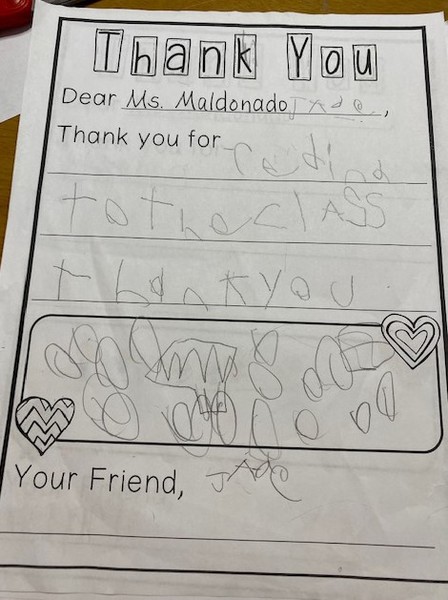 Thank You
Dear Ms. Maldonado Jade,
Thank you for reading
to the clASS
thank you
Your Friend, JAde